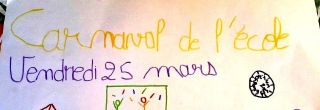 Carnaval de l'école
Vendredi 25 mars